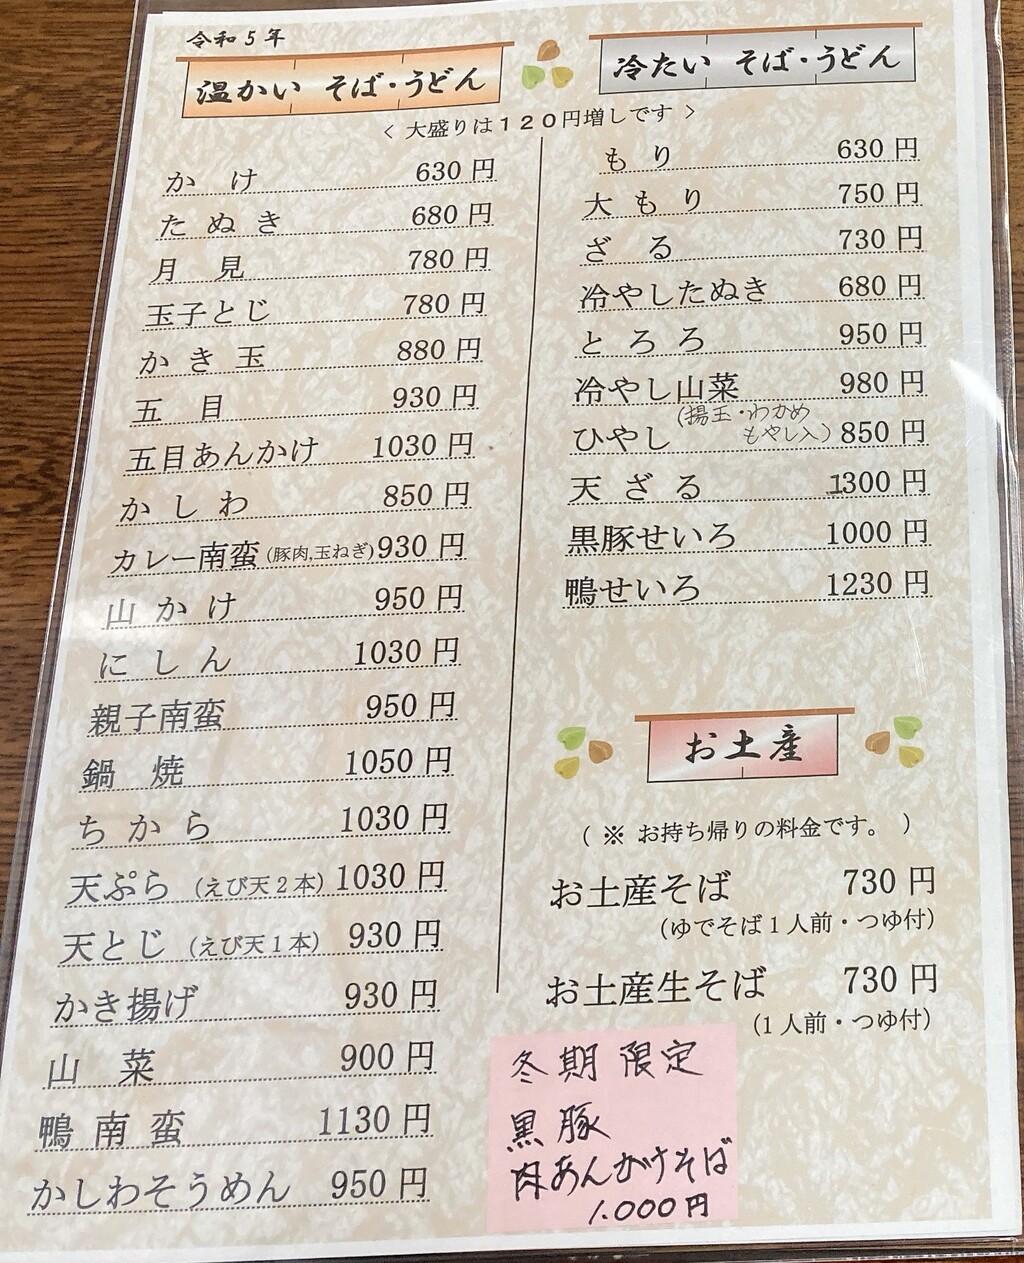 令和５年
温かい そば・うどん
＜ 大盛りは１２０円増しです ＞
かけ 630 円
たぬき 680 円
月見 780 円
玉子とじ 780 円
かき玉 880 円
五目 930 円
五目あんかけ 1030 円
かしわ 850 円
カレー南蛮 (豚肉,玉ねぎ) 930 円
山かけ 950 円
にしん 1030 円
親子南蛮 950 円
鍋焼 1050 円
ちから 1030 円
天ぷら （えび天２本） 1030 円
天とじ （えび天１本） 930 円
かき揚げ 930 円
山菜 900 円
鴨南蛮 1130 円
かしわそうめん 950 円
冷たい そば・うどん
もり 630 円
大もり 750 円
ざる 730 円
冷やしたぬき 680 円
とろろ 950 円
冷やし山菜 980 円
(揚玉・わかめ
ひやし もやし入) 850 円
天ざる 1300 円
黒豚せいろ 1000 円
鴨せいろ 1230 円
お土産
（ ※ お持ち帰りの料金です。 ）
お土産そば 730 円
（ゆでそば１人前・つゆ付）
お土産生そば 730 円
（１人前・つゆ付）
冬期 限定
黒豚
肉あんかけそば
1.000円